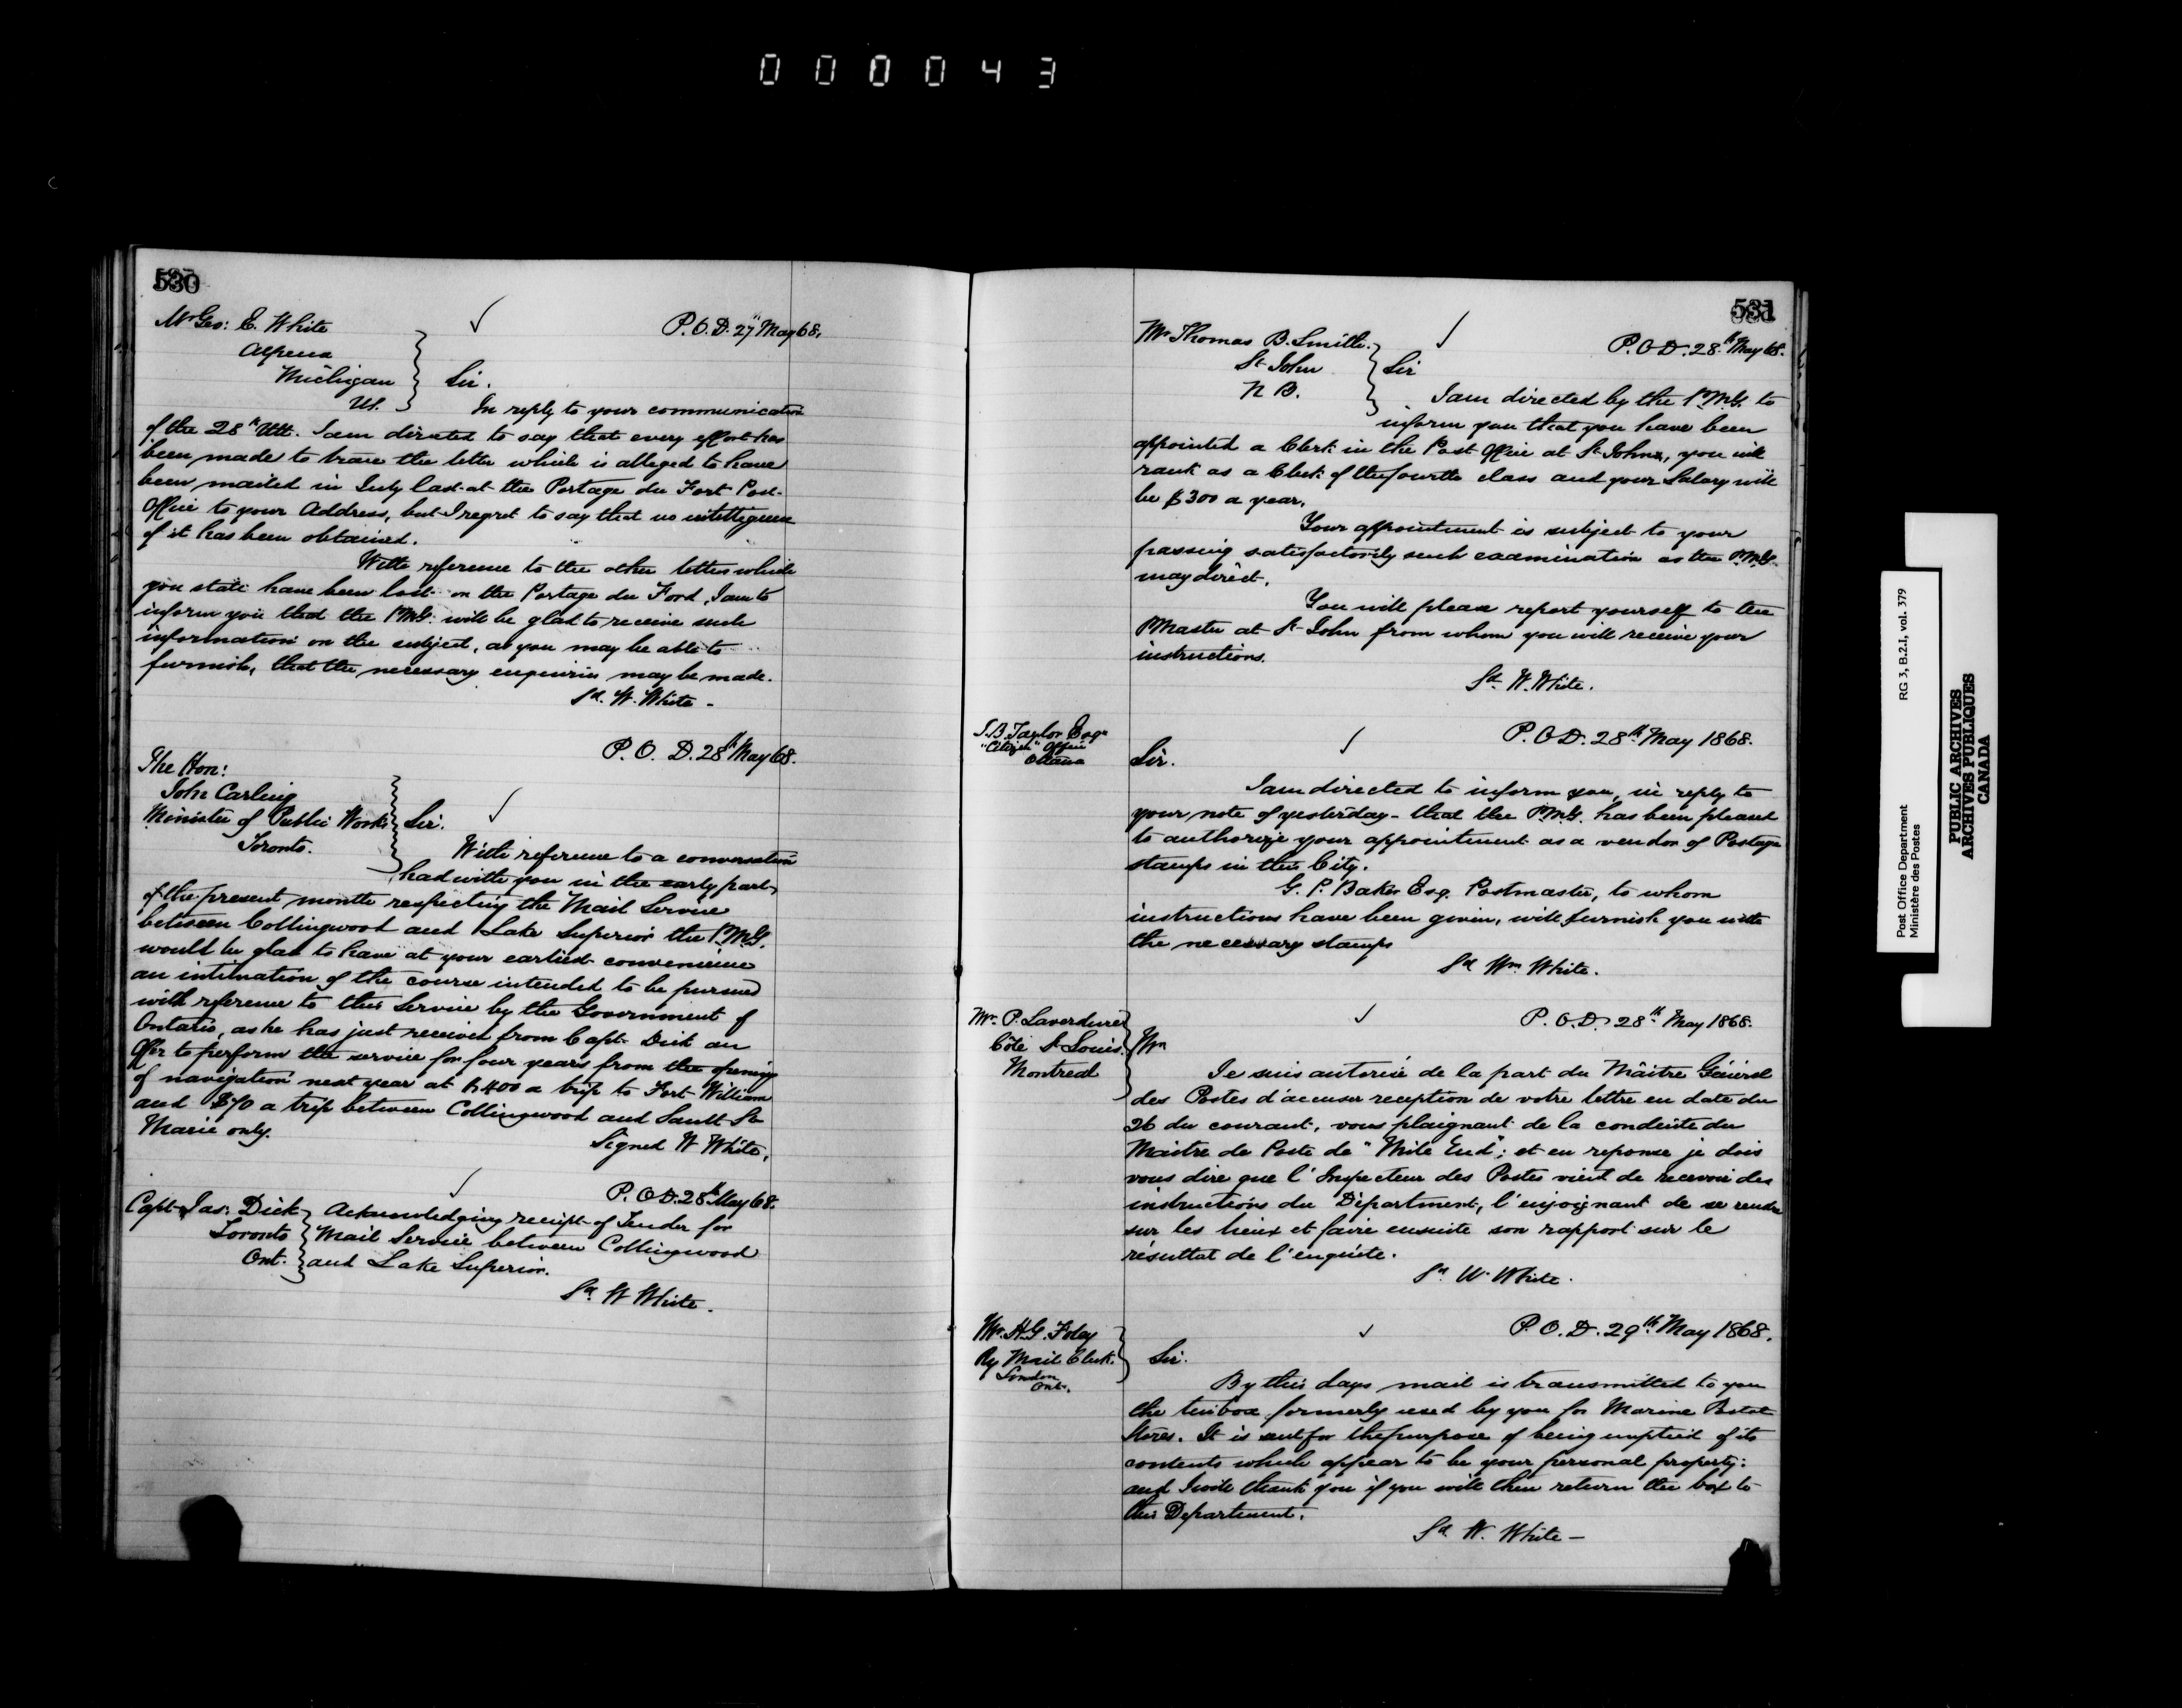 000043
530
Mr Geo: E. White
P.O.D. 27" May 68.
Alpena
Michigan
Sir.
US.
In reply to your communication
of the 28th Ult. I am directed to say that every effort has
been made to trace the letter which is alleged to have
been mailed in July last at the Portage du Fort Post
Office to your Address, but I regret to say that no intelligence
of it has been obtained.
With reference to the other letters which
you state have been lost on the Portage du Ford, I am to
inform you that the P.M.G. will be glad to receive such
information on the subject, as you may be able to
furnish, that the necessary enquiries may be made.
Sd. W. White -
P.O.D. 28th May 68.
The Hon:
John Carling
Minister of Public Works
Sir.
Toronto.
With reference to a conversation
had with you in the early part
of the present month respecting the Mail Service
between Collingwood and Lake Superior the P.M.G.
would be glad to have at your earliest convenience
an intimation of the course intended to be pursued
with reference to this Service by the Government of
Ontario, as he has just received from Capt. Dick an
Offer to perform the service for four years from the opening
of navigation next year at $400 a trip to Fort William
and $70 a trip between Collingwood and Sault Ste
Marie only.
Signed W White.
P.O.D. 28th May 68.
Capt Jas: Dick
Toronto
Ont.
Acknowledging receipt of Tender for
Mail Service between Collingwood
and Lake Superior.
Sd. W White.
531
Mr Thomas B. Smith.
P.O.D. 28th May 68.
St John
Sir
N B.
I am directed by the P.M.G. to
inform you that you have been
appointed a Clerk in the Post Office at St Johns, you will
rank as a Clerk of the fourth class and your Salary will
be $300 a year.
Your appointment is subject to your
passing satisfactorily such examination as the P.M.G.
may direct.
You will please report yourself to the
PMaster at St John from whom you will receive your
instructions.
Sd. W. White.
J.B. Taylor Esqr
"Citizen" Office
Ottawa
P.O.D. 28th May 1868.
Sir.
I am directed to inform you, in reply to
your note of yesterday - that the P.M.G. has been pleased
to authorize your appointment as a vendor of Postage
stamps in this City.
G. P. Baker Esq. Postmaster, to whom
instructions have been given, will furnish you with
the necessary stamps
Sd Wm White.
Mr. P. Laverdure
Côte St Louis.
Montreal
P.O.D. 28th May 1868.
Mr
Je suis autorisé de la part du Mâitre Général
des Postes d'accuser reception de votre lettre en date du
26 du courant, vous plaignant de la conduite du
Maitre de Poste de "Mile End"; et en reponse je dois
vous dire que l'Inspecteur des Postes vient de recevoir des
instructions du Départment, l'enjoignant de se rendre
sur les lieux et faire ensuite son rapport sur le
résultat de l'enquête.
Sd. W. White.
Mr. H.G. Foley
Ry Mail Clerk.
London
Ont.
P.O.D. 29th May 1868.
Sir.
By this days mail is transmitted to you
the tin box formerly used by you for Marine Postal
Stores. It is sent for the purpose of being emptied of its
contents which appear to be your personal property:
and I will thank you if you will then return the box to
this Department.
Sd. W. White -
Post Office Department RG 3, B.2.I, vol. 379
Ministère des Postes
PUBLIC ARCHIVES
ARCHIVES PUBLIQUES
CANADA